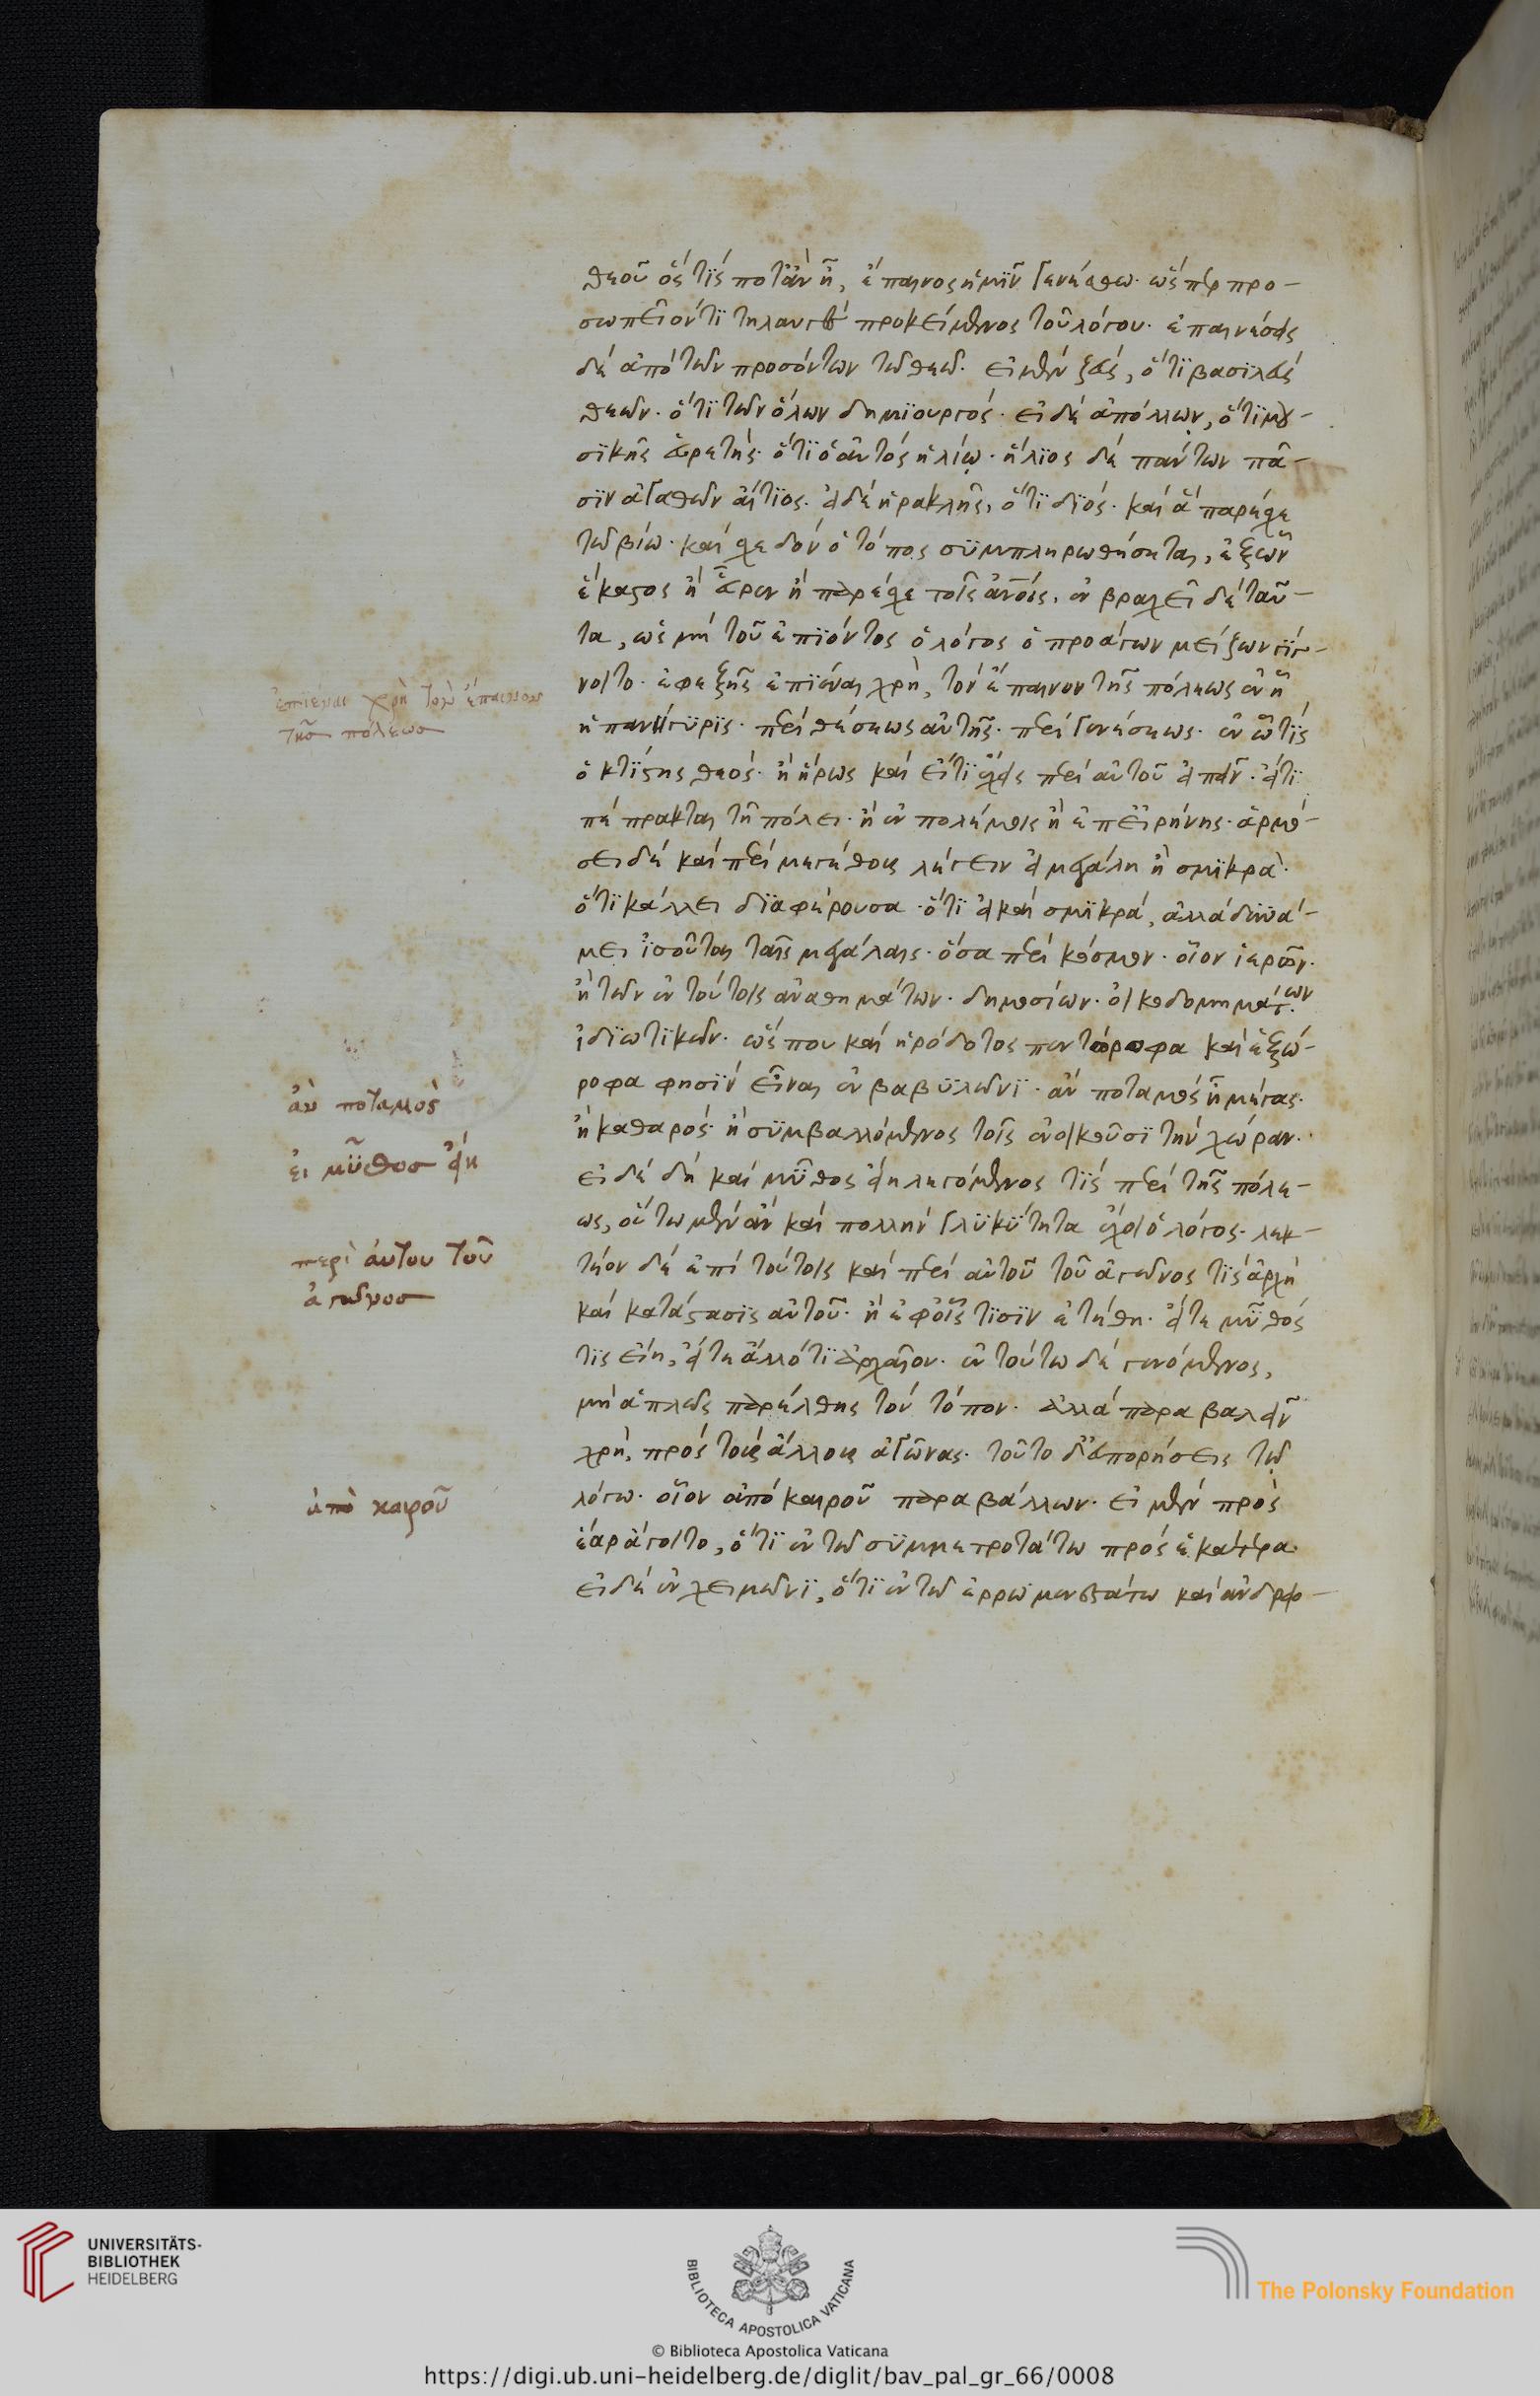 θεοῦ ὅς τίς ποτ᾽ ἂν ᾖ, ἔπαινος ἡμῖν γενέσθω. ὥσπερ προ-
σωπεῖόν τι τηλαυγὲς προκείμενος τοῦ λόγου. ἐπαινέσεις
δὲ ἀπὸ τῶν προσόντων τῷ θεῷ. εἰ μὲν ζεύς, ὅτι βασιλεὺς
θεῶν. ὅτι τῶν ὅλων δημιουργός. εἰ δὲ ἀπόλλων, ὅτι μου-
σικῆς εὑρετής. ὅτι ὁ αὐτὸς ἡλίῳ. ἥλιος δὲ πάντων πᾶ-
σιν ἀγαθῶν αἴτιος. εἰ δὲ ἡρακλῆς, ὅτι διός. καὶ ἃ παρέσχε
τῷ βίῳ. καὶ σχεδὸν ὁ τόπος συμπληρωθήσεται, ἐξ ὧν
ἕκαστος ἢ εὗρεν ἢ παρέσχε τοῖς ἀνοις. ἐν βραχεῖ δὲ ταῦ-
τα, ὡς μὴ τοῦ ἐπιόντος ὁ λόγος ὁ προάγων μείζων γίγ-
νοιτο. ἐφεξῆς ἐπιέναι χρὴ, τὸν ἔπαινον τῆς πόλεως ἐν ᾗ
ἡ πανήγυρις. περὶ θέσεως αὐτῆς. περὶ γενέσεως. ἐν ᾧ τίς
ὁ κτίστης θεός. ἢ ἥρως καὶ εἴ τι ἔχεις περὶ αὐτοῦ εἰπεῖν. εἴ τι
πέπρακται τῇ πόλει. ἢ ἐν πολέμοις ἢ ἐπ᾽ εἰρήνης. ἁρμό-
σει δὲ καὶ περὶ μεγέθους λέγειν εἰ μεγάλη ἢ σμικρὰ.
ὅτι κάλλει διαφέρουσα. ὅτι εἰ καὶ σμικρά, ἀλλὰ δυνά-
μει ἰσοῦται ταῖς μεγάλαις. ὅσα περὶ κόσμον. οἷον ἱερῶν.
ἢ τῶν ἐν τούτοις ἀναθημάτων. δημοσίων. οἰκοδομημάτων
ἰδιωτικῶν. ὥς που καὶ ἡρόδοτος πεντώροφα καὶ ἑξώ-
ροφα φησὶν εἶναι ἐν βαβυλῶνι. ἂν ποταμὸς ᾖ μέγας.
ἢ καθαρός. ἢ συμβαλλόμενος τοῖς ἐνοικοῦσι τὴν χώραν.
εἰ δὲ δὴ καὶ μῦθος εἴη λεγόμενος τὶς περὶ τῆς πόλε-
ως, οὕτω μὲν ἂν καὶ πολλὴν γλυκύτητα ἔχοι ὁ λόγος. λεκ-
τέον δὲ ἐπὶ τούτοις καὶ περὶ αὐτοῦ τοῦ ἀγῶνος τίς ἀρχὴ
καὶ κατάστασις αὐτοῦ. ἢ ἐφ᾽ οἷς τισὶν ἐτέθη. εἴτε μῦθός
τις εἴη, εἴτε ἄλλό τι ἀρχαῖον. ἐν τούτῳ δὲ γενόμενος,
μὴ ἁπλῶς παρέλθῃς τὸν τόπον. ἀλλὰ παραβαλεῖν
χρή, πρὸς τοὺς ἄλλους ἀγῶνας. τοῦτο δ᾽ εὐπορήσεις τῷ
λόγῳ. οἷον ἀπὸ καιροῦ παραβάλλων. εἰ μὲν πρὸς
ἔαρ ἄγοιτο, ὅτι ἐν τῷ συμμετροτάτῳ πρὸς ἑκάτερα.
εἰ δὲ ἐν χειμῶνι, ὅτι ἐν τῷ ἐρρωμενεστάτῳ καὶ ἀνδρειο-
ἐπιέναι χρὴ τὸν ἔπαινον
τῆσ πόλεωσ
ἂν ποταμὸς
εἰ μῦθοσ εἴη
περὶ αὐτου τοῦ
ἀγῶνοσ
ἀπὸ καιροῦ
UNIVERSITÄTS-
BIBLIOTHEK
HEIDELBERG
BIBLIOTECA APOSTOLICA VATICANA
The Polonsky Foundation
© Biblioteca Apostolica Vaticana
https://digi.ub.uni-heidelberg.de/diglit/bav_pal_gr_66/0008